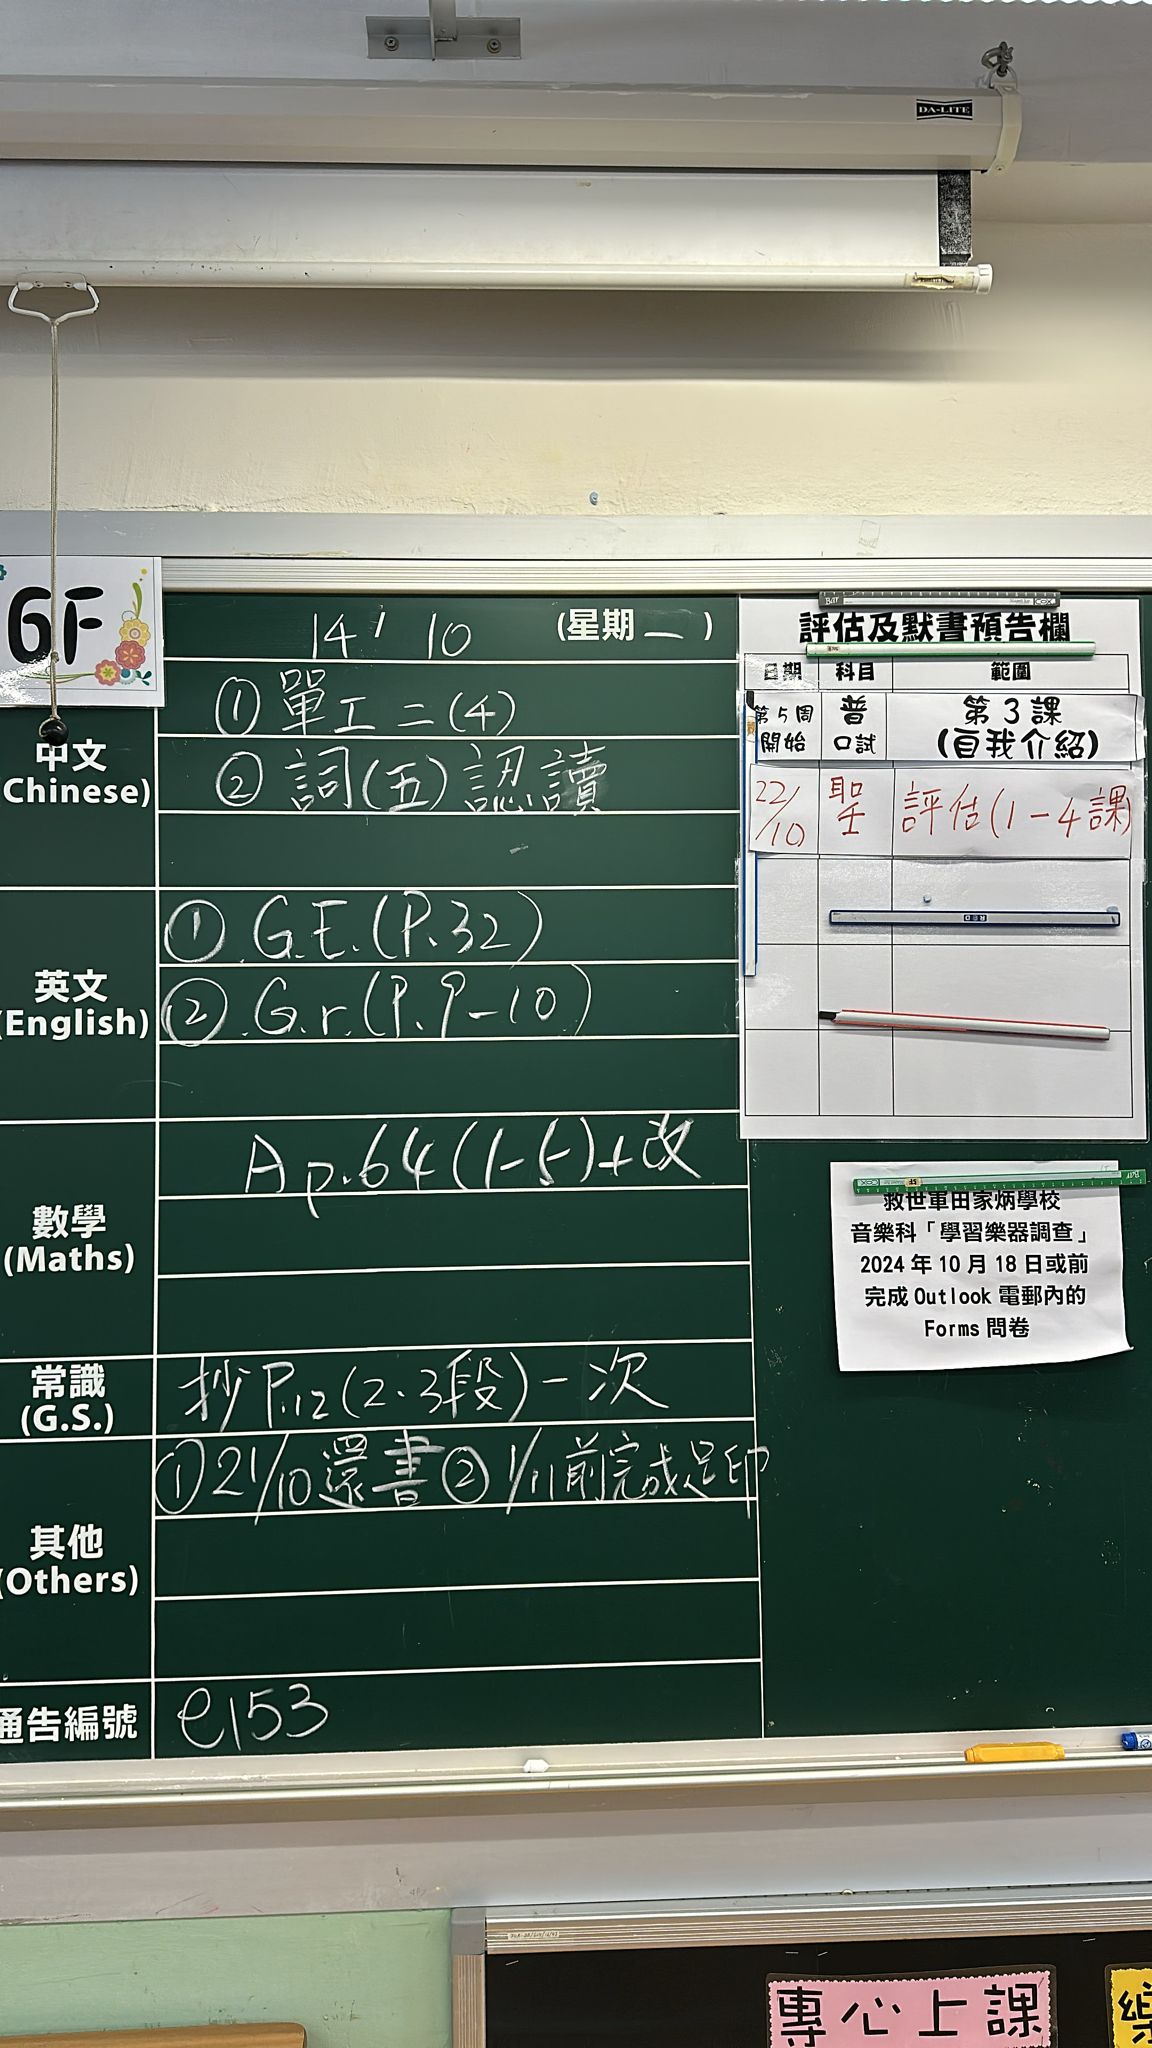 DA-LITE
6F
14/10 (星期一)
中文
(Chinese)
① 單工二(4)
② 詞(五)認讀
英文
(English)
① G.E.(P.32)
② G.r.(P.9-10)
數學
(Maths)
A p.64(1-5)+改
常識
(G.S.)
抄P.12(2.3段)一次
其他
(Others)
① 21/10還書 ② 1/11前完成足印
通告編號
e153
評估及默書預告欄
日期 科目 範圍
第5周開始 普口試 第3課(自我介紹)
22/10 聖 評估(1-4課)
救世軍田家炳學校
音樂科「學習樂器調查」
2024年10月18日或前
完成Outlook電郵內的
Forms問卷
專心上課